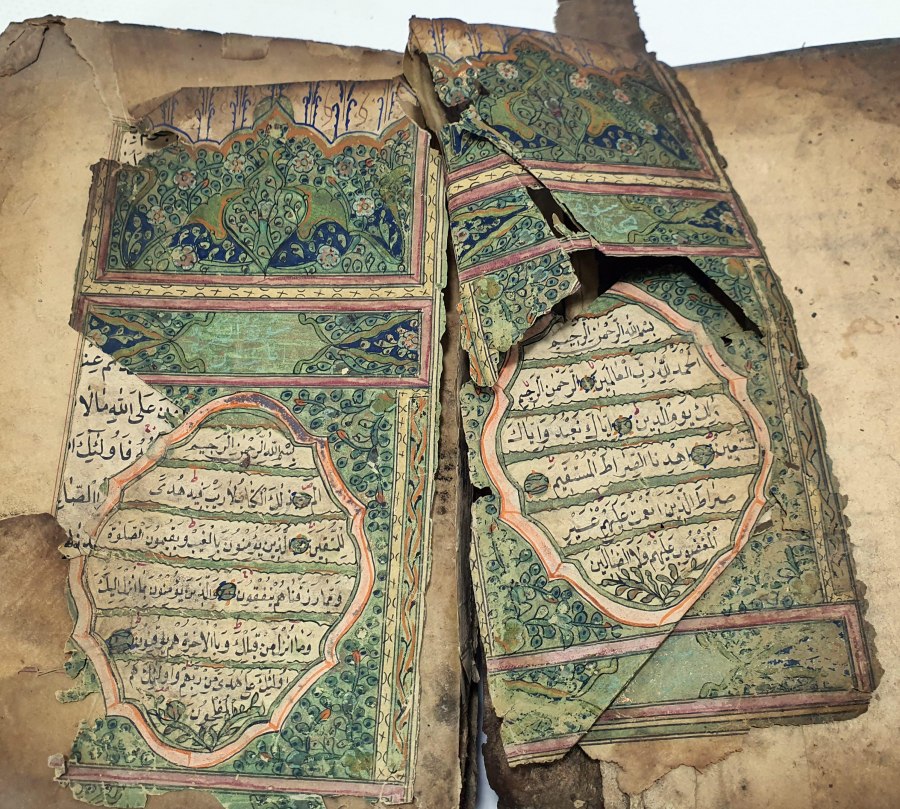 بسم الله الرحمن الرحيم
الحمد لله رب العالمين الرحمن الرحيم
مالك يوم الدين اياك نعبد واياك
نستعين اهدنا الصراط المستقيم
صراط الذين انعمت عليهم غير
المغضوب عليهم ولا الضالين
بسم الله الرحمن الرحيم
الم ذلك الكتاب لا ريب فيه هدى
للمتقين الذين يؤمنون بالغيب ويقيمون الصلوة
ومما رزقناهم ينفقون والذين يؤمنون بما انزل اليك
وما انزل من قبلك وبالاخرة هم يوقنون
اولئك على هدى من ربهم واولئك هم
المفلحون
على الله مالا